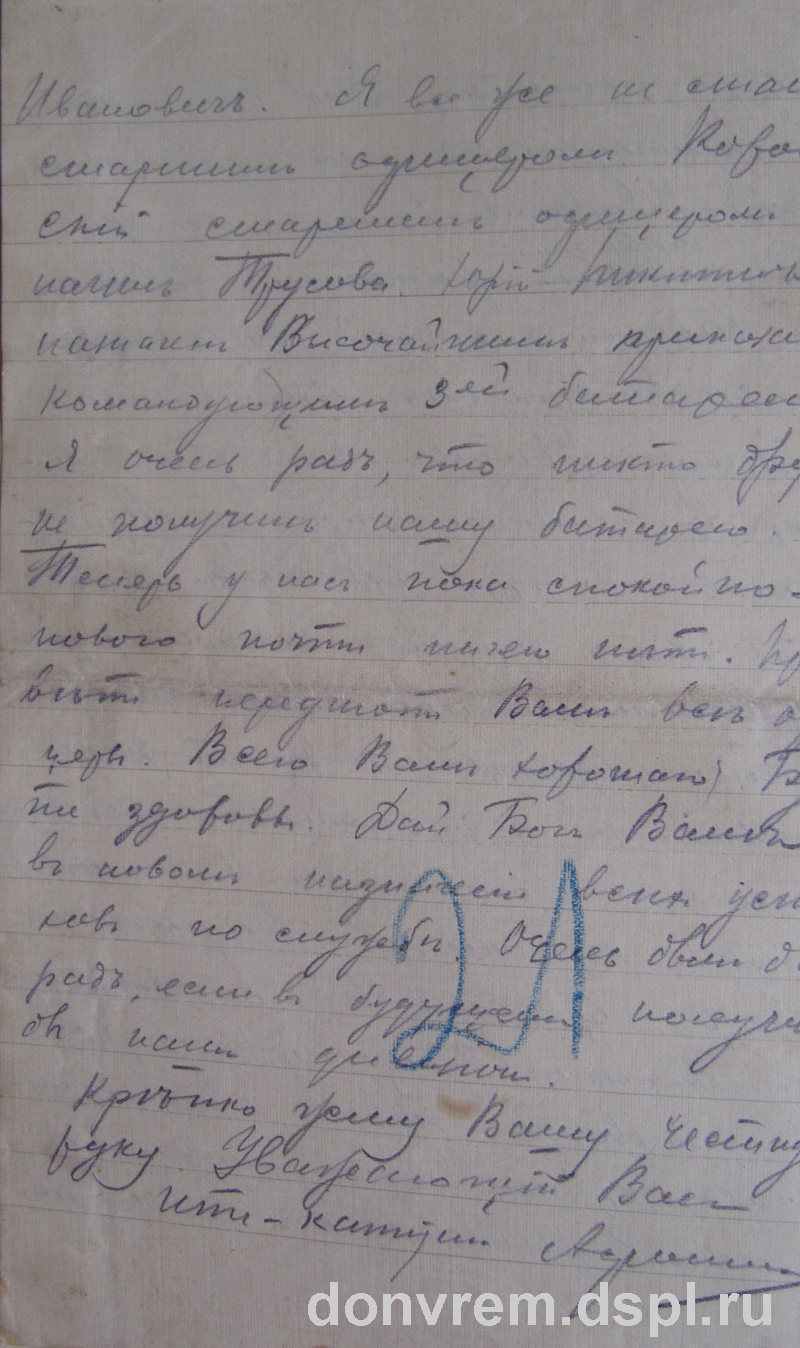 Ивановичъ. Я все же не
старшимъ офицеромъ.
скій старшимъ офицеромъ
Трусова. Юрій Никитичъ
Высочайшимъ приказо
командующимъ 3ей батареи
Я очень радъ, что никто дру
не получилъ нашу батарею.
Теперь у насъ пока спокойно
нового почти ничего нѣтъ. Пр
вѣтъ передаютъ Вамъ всѣ о
церы. Всего Вамъ хорошаго. Бу
те здоровы. Дай Богъ Вамъ
въ новомъ назначеніи всѣхъ усп
ховъ по службѣ. Очень былъ б
радъ, если въ будущемъ получи
бы нашъ дивизіон.
Крѣпко жму Вашу честную
руку. Уважающій Васъ
21
donvrem.dspl.ru